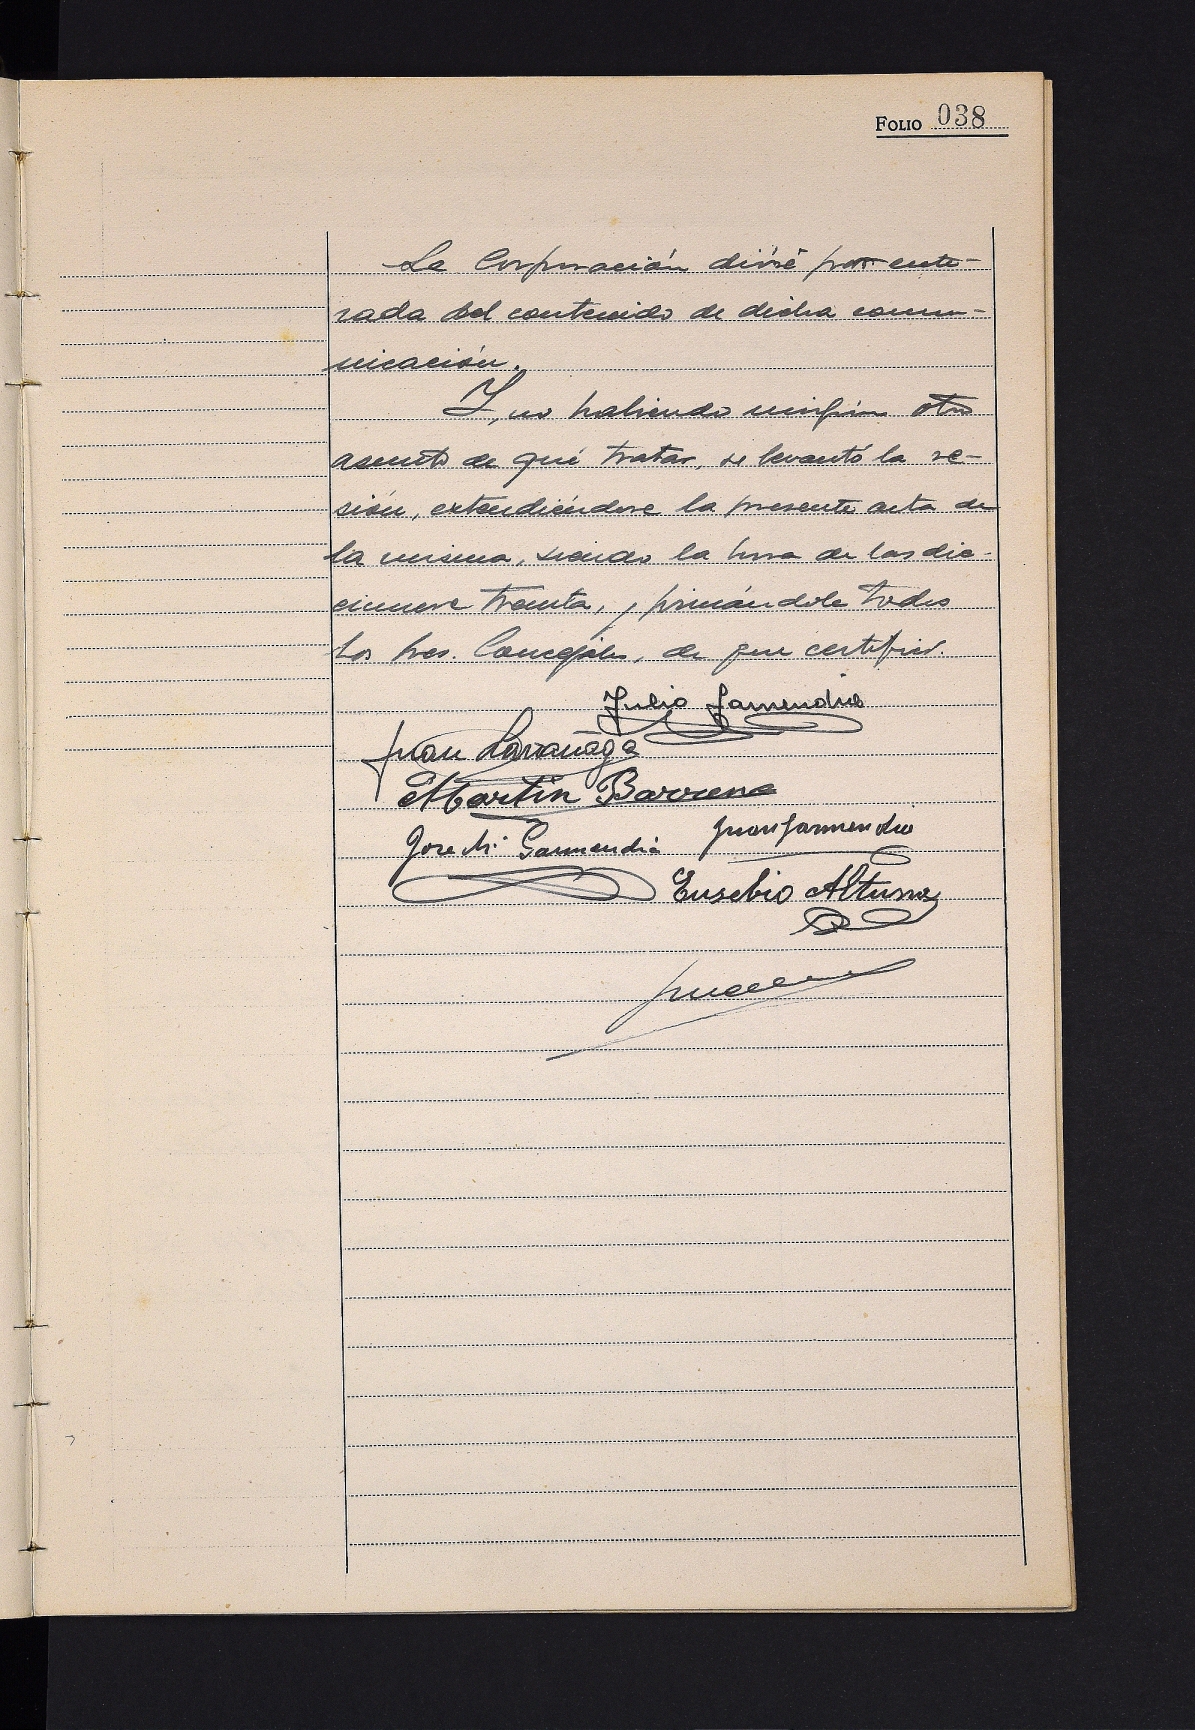 FOLIO 038
La Corporación dióse por ente-
rada del contenido de dicha comu-
nicación.
Y, no habiendo ningún otro
asunto de qué tratar, se levantó la se-
sión, extendiéndose la presente acta de
la misma, siendo la hora de las die-
cinueve treinta, y firmándole todos
los Sres. Concejales, de que certifico.
Julio Garmendia
Juan Larrañaga
Martin Barrena
Jose M. Garmendia Juan Garmendia
Eusebio Altuna